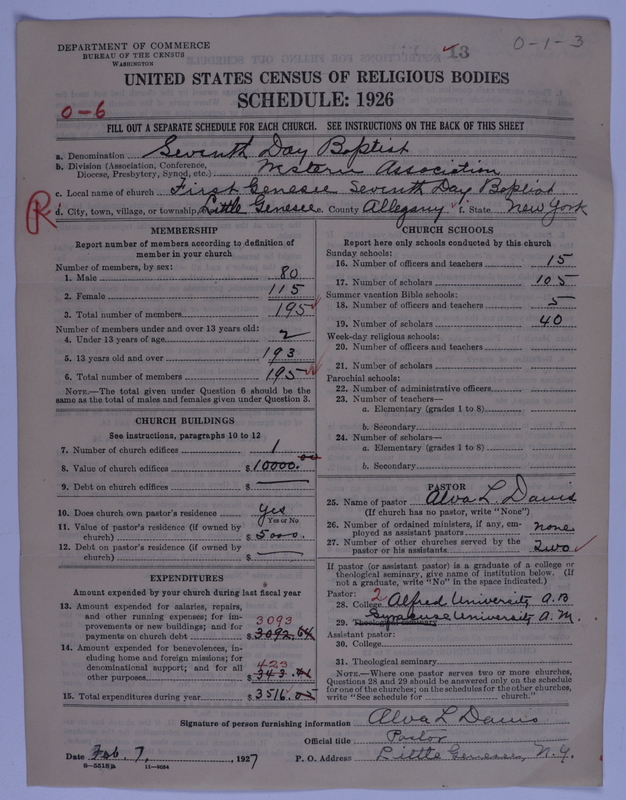 DEPARTMENT OF COMMERCE
BUREAU OF THE CENSUS
WASHINGTON
13
0-1-3
UNITED STATES CENSUS OF RELIGIOUS BODIES
SCHEDULE: 1926
0-6
FILL OUT A SEPARATE SCHEDULE FOR EACH CHURCH. SEE INSTRUCTIONS ON THE BACK OF THIS SHEET
a. Denomination Seventh Day Baptist
b. Division (Association, Conference, Diocese, Presbytery, Synod, etc.) Western Association
c. Local name of church First Genesee Seventh Day Baptist
R
d. City, town, village, or township Little Genesee e. County Allegany f. State New York
MEMBERSHIP
Report number of members according to definition of
member in your church
Number of members, by sex:
1. Male 80
2. Female 115
3. Total number of members 195
Number of members under and over 13 years old:
4. Under 13 years of age 2
5. 13 years old and over 193
6. Total number of members 195
NOTE.—The total given under Question 6 should be the
same as the total of males and females given under Question 3.
CHURCH BUILDINGS
See instructions, paragraphs 10 to 12
7. Number of church edifices 1
8. Value of church edifices $10000.00
9. Debt on church edifices $
10. Does church own pastor's residence? Yes
Yes or No
11. Value of pastor's residence (if owned by
church) $5000.
12. Debt on pastor's residence (if owned by
church) $
EXPENDITURES
Amount expended by your church during last fiscal year
13. Amount expended for salaries, repairs,
and other running expenses; for im-
provements or new buildings; and for
payments on church debt
3093
$3092.64
14. Amount expended for benevolences, in-
cluding home and foreign missions; for
denominational support; and for all
other purposes
423
15. Total expenditures during year $3516.05
CHURCH SCHOOLS
Report here only schools conducted by this church
Sunday schools:
16. Number of officers and teachers 15
17. Number of scholars 105
Summer vacation Bible schools:
18. Number of officers and teachers 5
19. Number of scholars 40
Week-day religious schools:
20. Number of officers and teachers
21. Number of scholars
Parochial schools:
22. Number of administrative officers
23. Number of teachers—
a. Elementary (grades 1 to 8)
b. Secondary
24. Number of scholars—
a. Elementary (grades 1 to 8)
b. Secondary
PASTOR
25. Name of pastor Alva L. Davis
(If church has no pastor, write "None")
26. Number of ordained ministers, if any, em-
ployed as assistant pastors none
27. Number of other churches served by the
pastor or his assistants Two
If pastor (or assistant pastor) is a graduate of a college or
theological seminary, give name of institution below. (If
not a graduate, write "No" in the space indicated.)
Pastor: 2
28. College Alfred University, A.B
29. Theological seminary Syracuse University, A.M.
Assistant pastor:
30. College
31. Theological seminary
NOTE.—Where one pastor serves two or more churches,
Questions 28 and 29 should be answered only on the schedule
for one of the churches; on the schedules for the other churches,
write "See schedule for ............ church."
Signature of person furnishing information Alva L Davis
Official title Pastor
Date Feb. 7, 1927 P. O. Address Little Genesee, N.Y.
8-5518B 11-9084